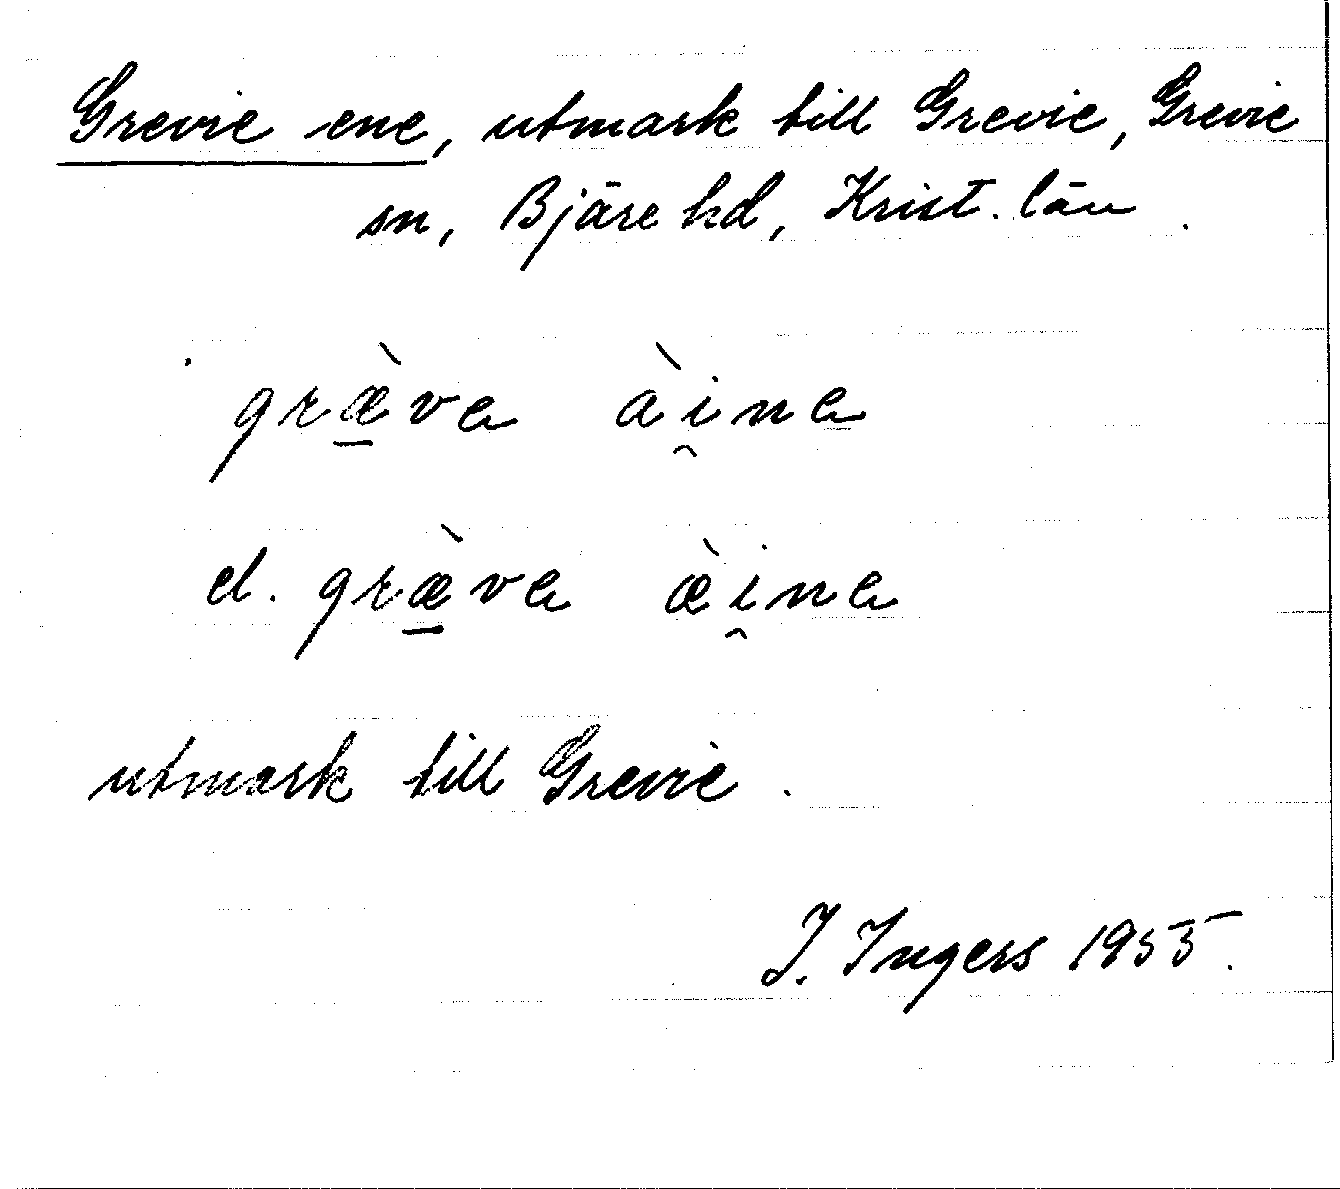 Grevie ene, utmark till Grevie, Grevie
sn, Bjäre hd, Krist. län.
græ̱̀ve ài̯ne
el. græ̱̀ve æ̀i̯ne
utmark till Grevie.
I. Ingers 1955.